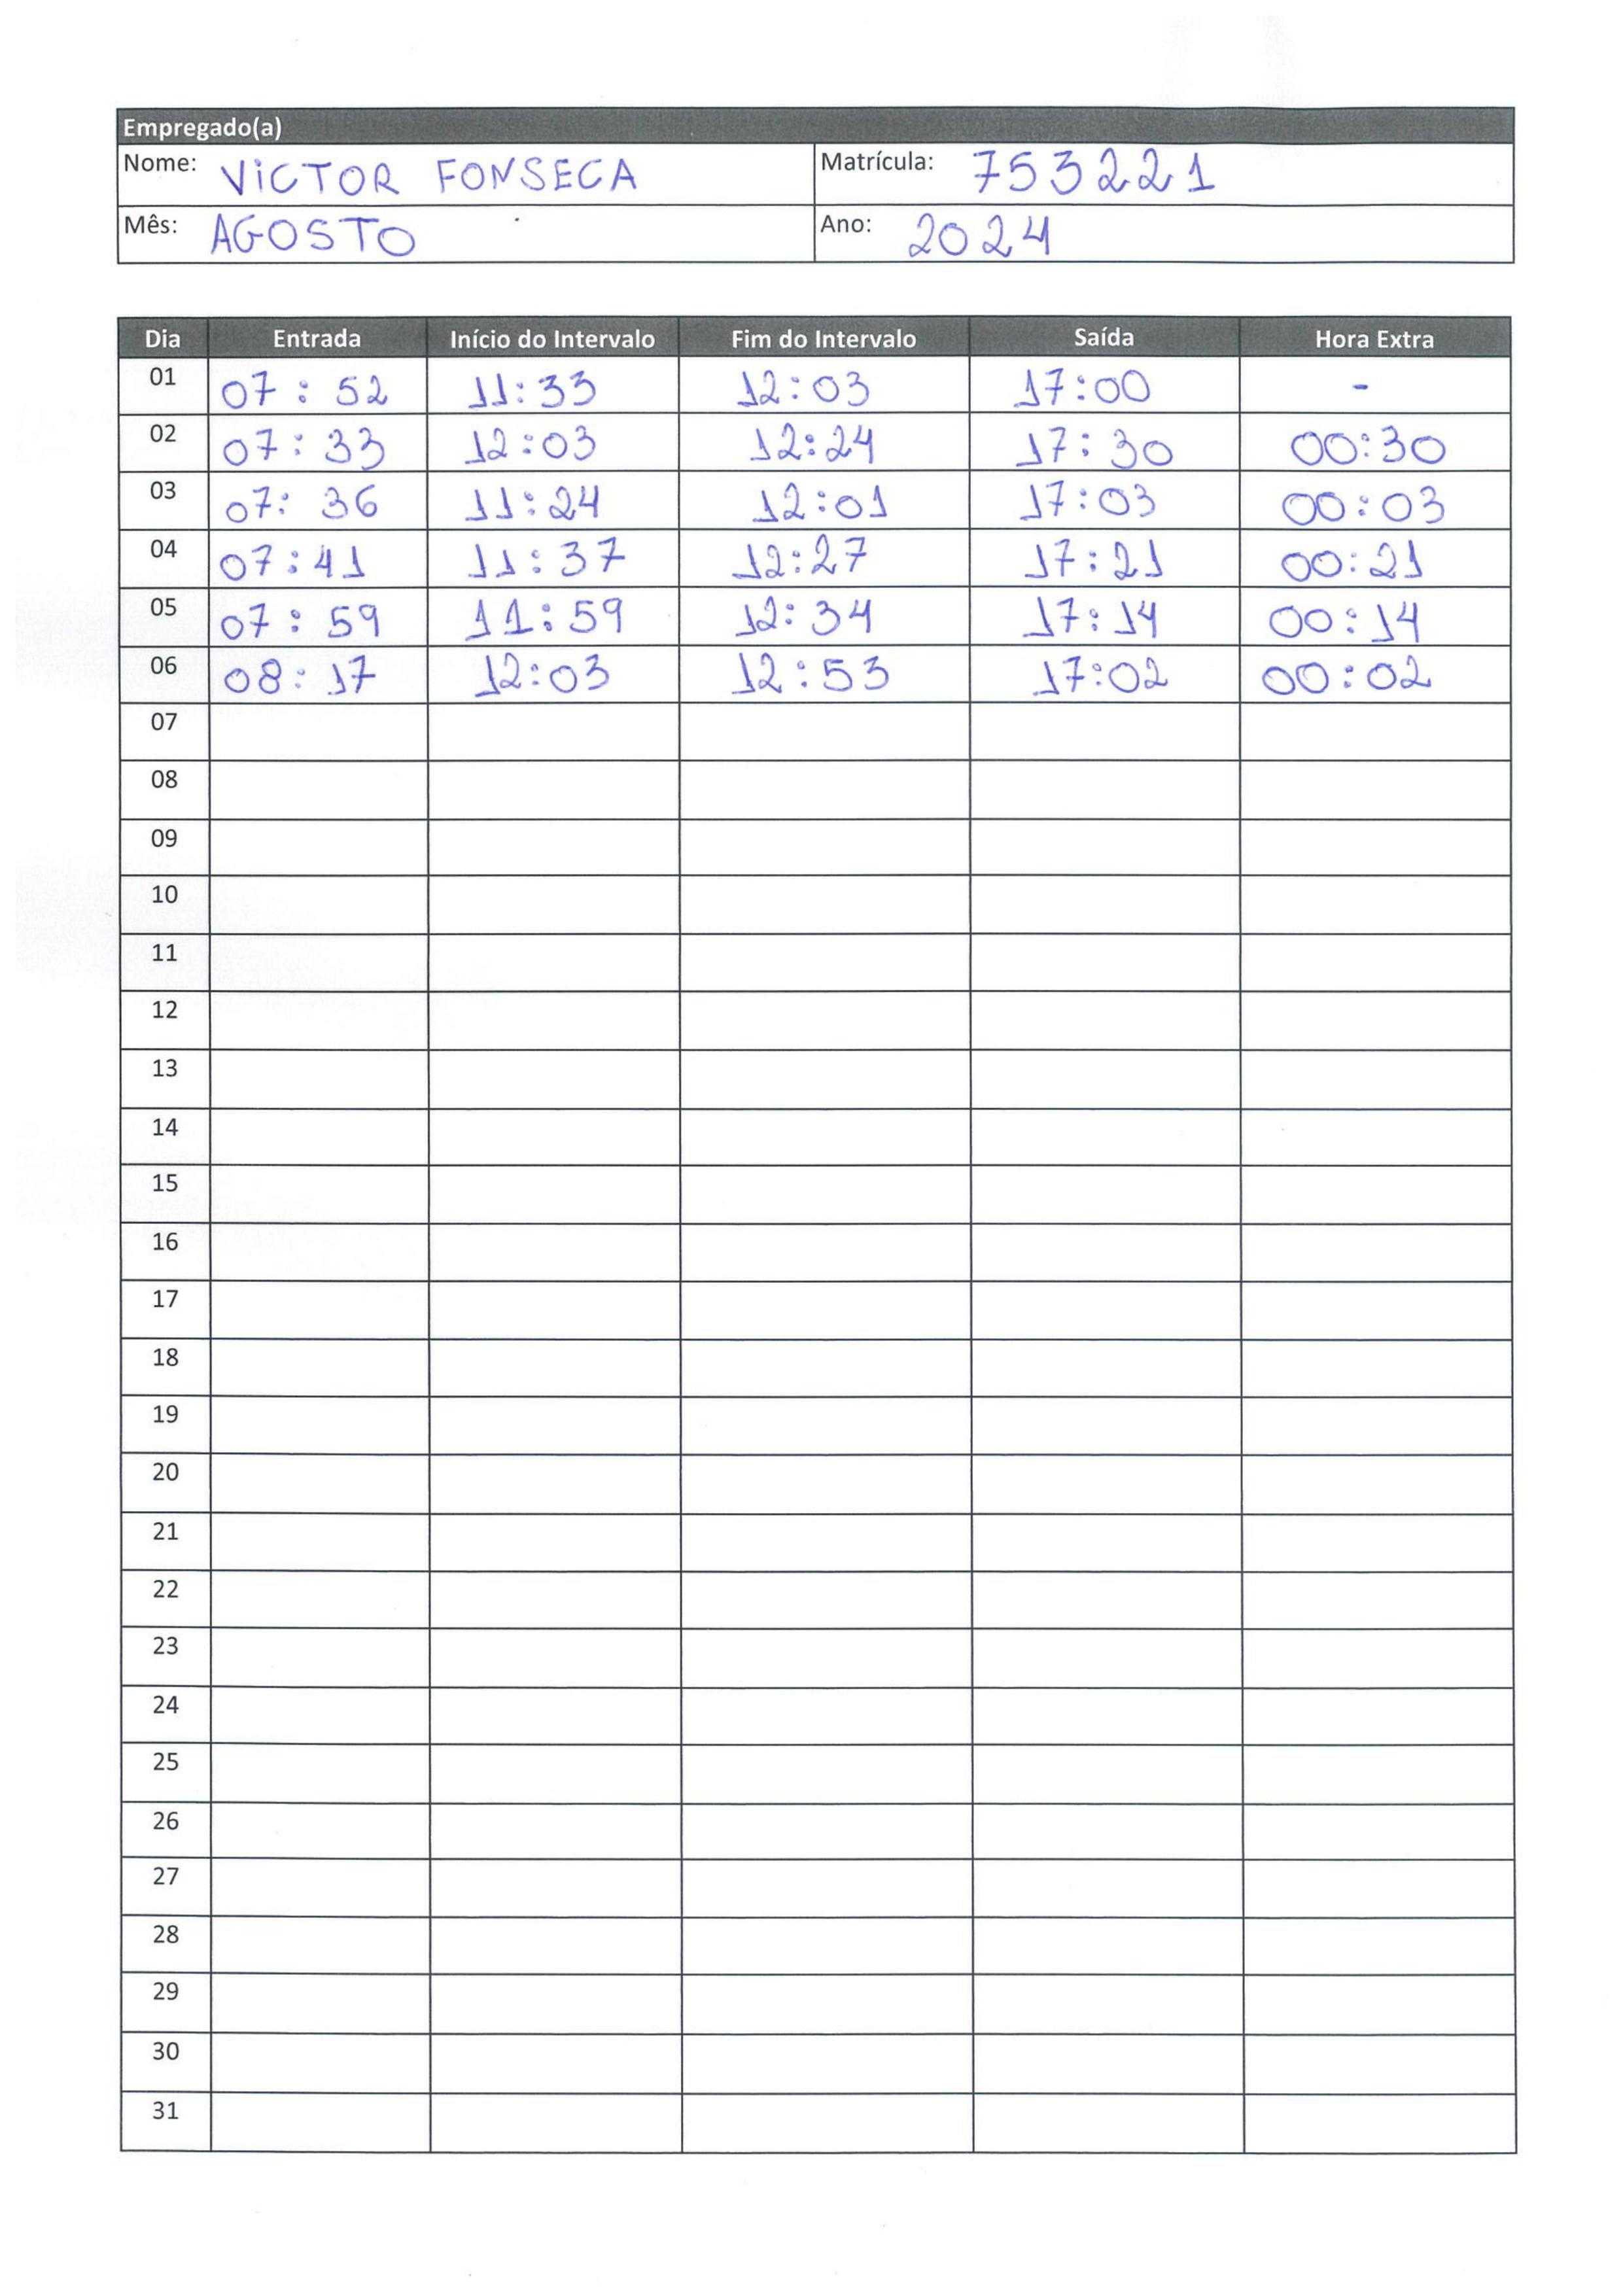 Empregado(a)
Nome: VICTOR FONSECA Matrícula: 753221
Mês: AGOSTO Ano: 2024
Dia Entrada Início do Intervalo Fim do Intervalo Saída Hora Extra
01 07:52 11:33 12:03 17:00 -
02 07:33 12:03 12:24 17:30 00:30
03 07:36 11:24 12:01 17:03 00:03
04 07:41 11:37 12:27 17:21 00:21
05 07:59 11:59 12:34 17:14 00:14
06 08:17 12:03 12:53 17:02 00:02
07
08
09
10
11
12
13
14
15
16
17
18
19
20
21
22
23
24
25
26
27
28
29
30
31